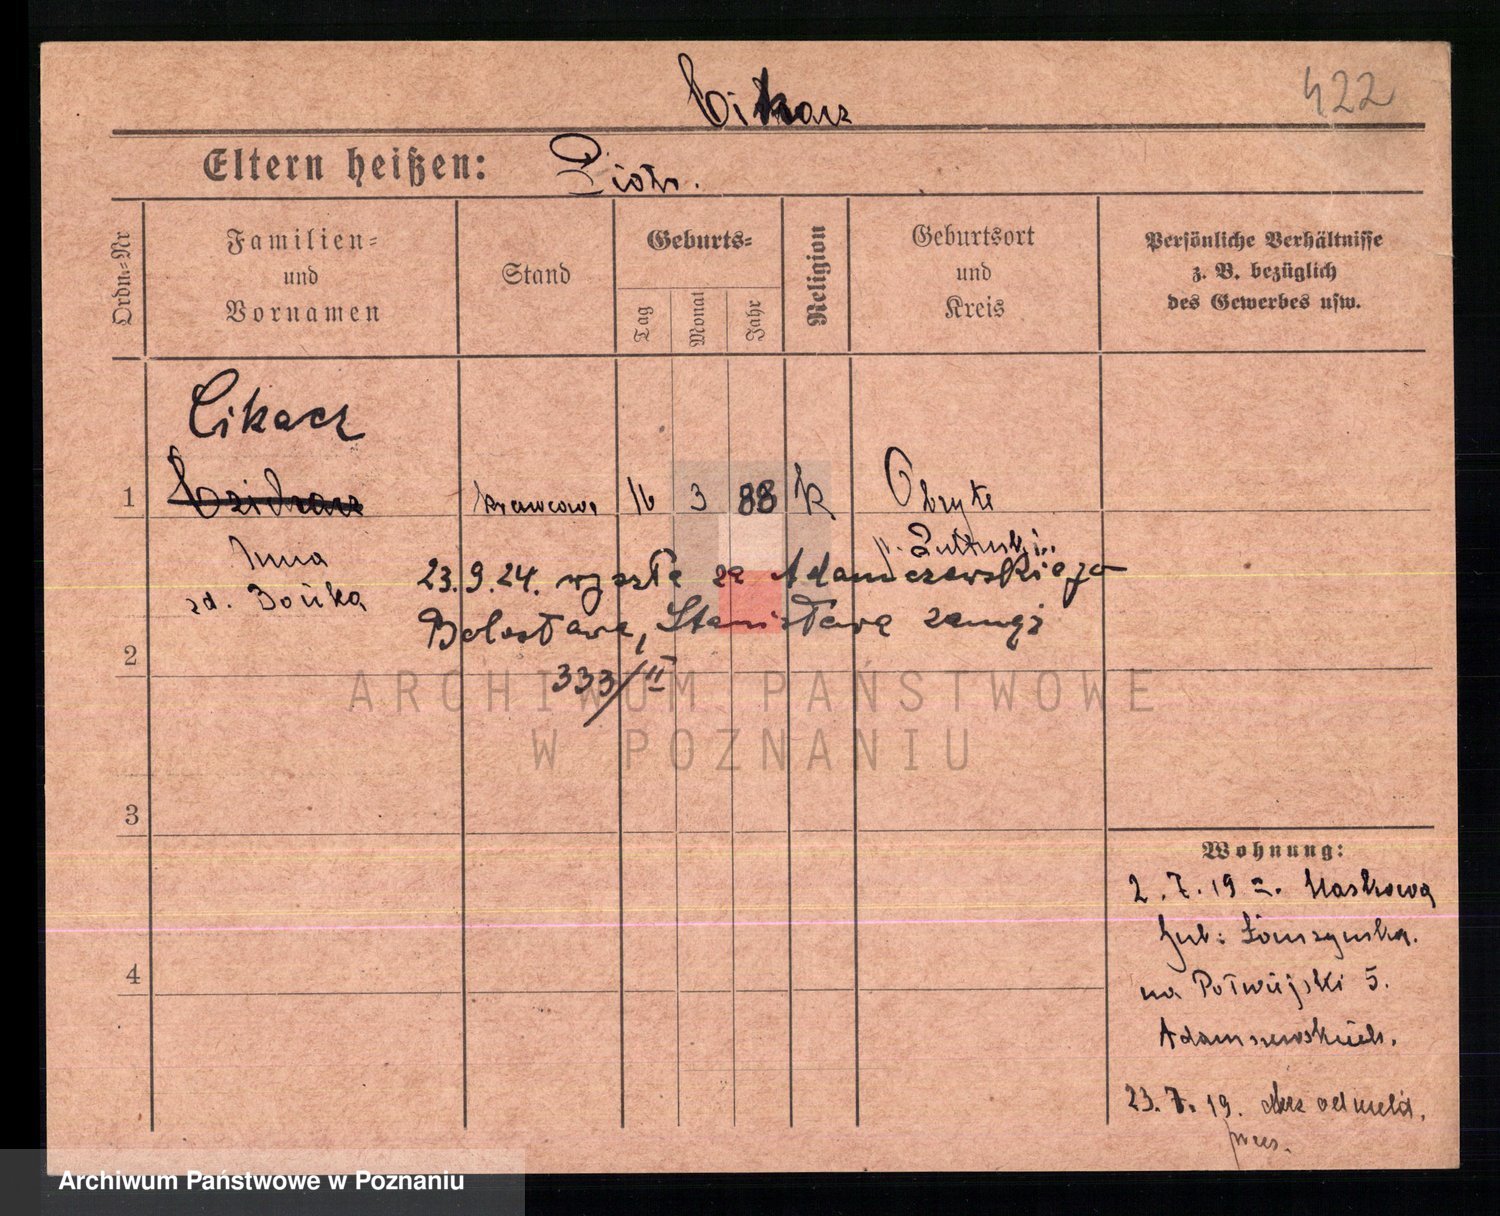 Cikacz
422
Eltern heißen: Piotr.
Ordn.-Nr
Familien-
und
Vornamen
Stand
Geburts-
Tag
Monat
Jahr
Religion
Geburtsort
und
Kreis
Persönliche Verhältnisse
z. B. bezüglich
des Gewerbes usw.
Cikacz
1
krawcowa 16 3 88 k Obryte
Anna
23.9.24. wyszła za Adamczewskiego
zd.
Bolesława, Stanisława zamąż
2
333/II
ARCHIWUM PAŃSTWOWE
W POZNANIU
3
4
Wohnung:
2.7.19 z.
gub: Łomzynska.
na Półwiejski 5.
23.7.19.
Archiwum Państwowe w Poznaniu